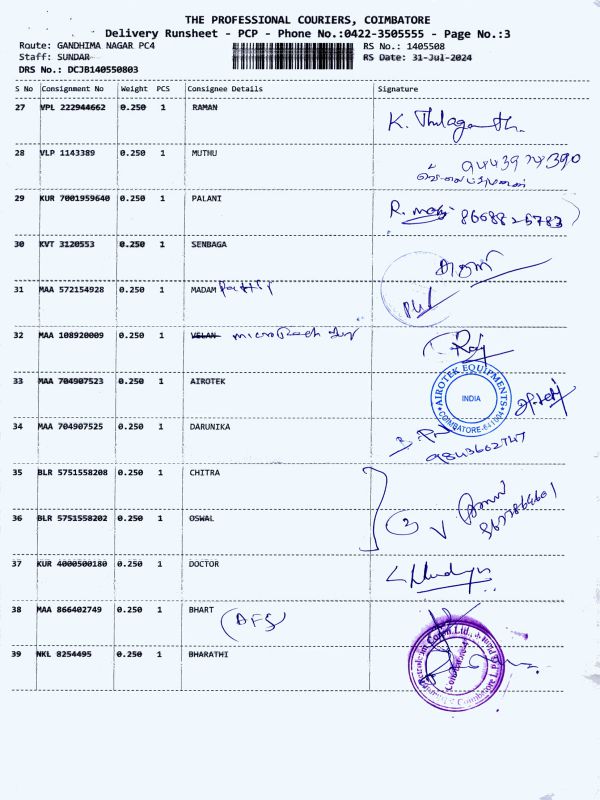 THE PROFESSIONAL COURIERS, COIMBATORE
Delivery Runsheet - PCP - Phone No.:0422-3505555 - Page No.:3
Route: GANDHIMA NAGAR PC4 RS No.: 1405508
Staff: SUNDAR RS Date: 31-Jul-2024
DRS No.: DCJB140550803
S No Consignment No Weight PCS Consignee Details Signature
27 VPL 222944662 0.250 1 RAMAN
K. Thilaganth.
28 VLP 1143389 0.250 1 MUTHU
29 KUR 7001959640 0.250 1 PALANI
R. 8668825783
30 KVT 3120553 0.250 1 SENBAGA
31 MAA 572154928 0.250 1 MADAM
32 MAA 108920009 0.250 1 VELAN
33 MAA 704907523 0.250 1 AIROTEK
AIROTEK EQUIPMENTS
INDIA
COIMBATORE-641004
34 MAA 704907525 0.250 1 DARUNIKA
9843602747
35 BLR 5751558208 0.250 1 CHITRA
36 BLR 5751558202 0.250 1 OSWAL
37 KUR 4000500180 0.250 1 DOCTOR
38 MAA 866402749 0.250 1 BHART
(AFS)
39 NKL 8254495 0.250 1 BHARATHI